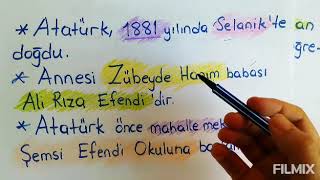 * Atatürk, 1881 yılında Selanik'te
doğdu.
* Annesi Zübeyde Hanım babası
Ali Rıza Efendi'dir.
* Atatürk önce mahalle
Şemsi Efendi Okuluna
FILMIX